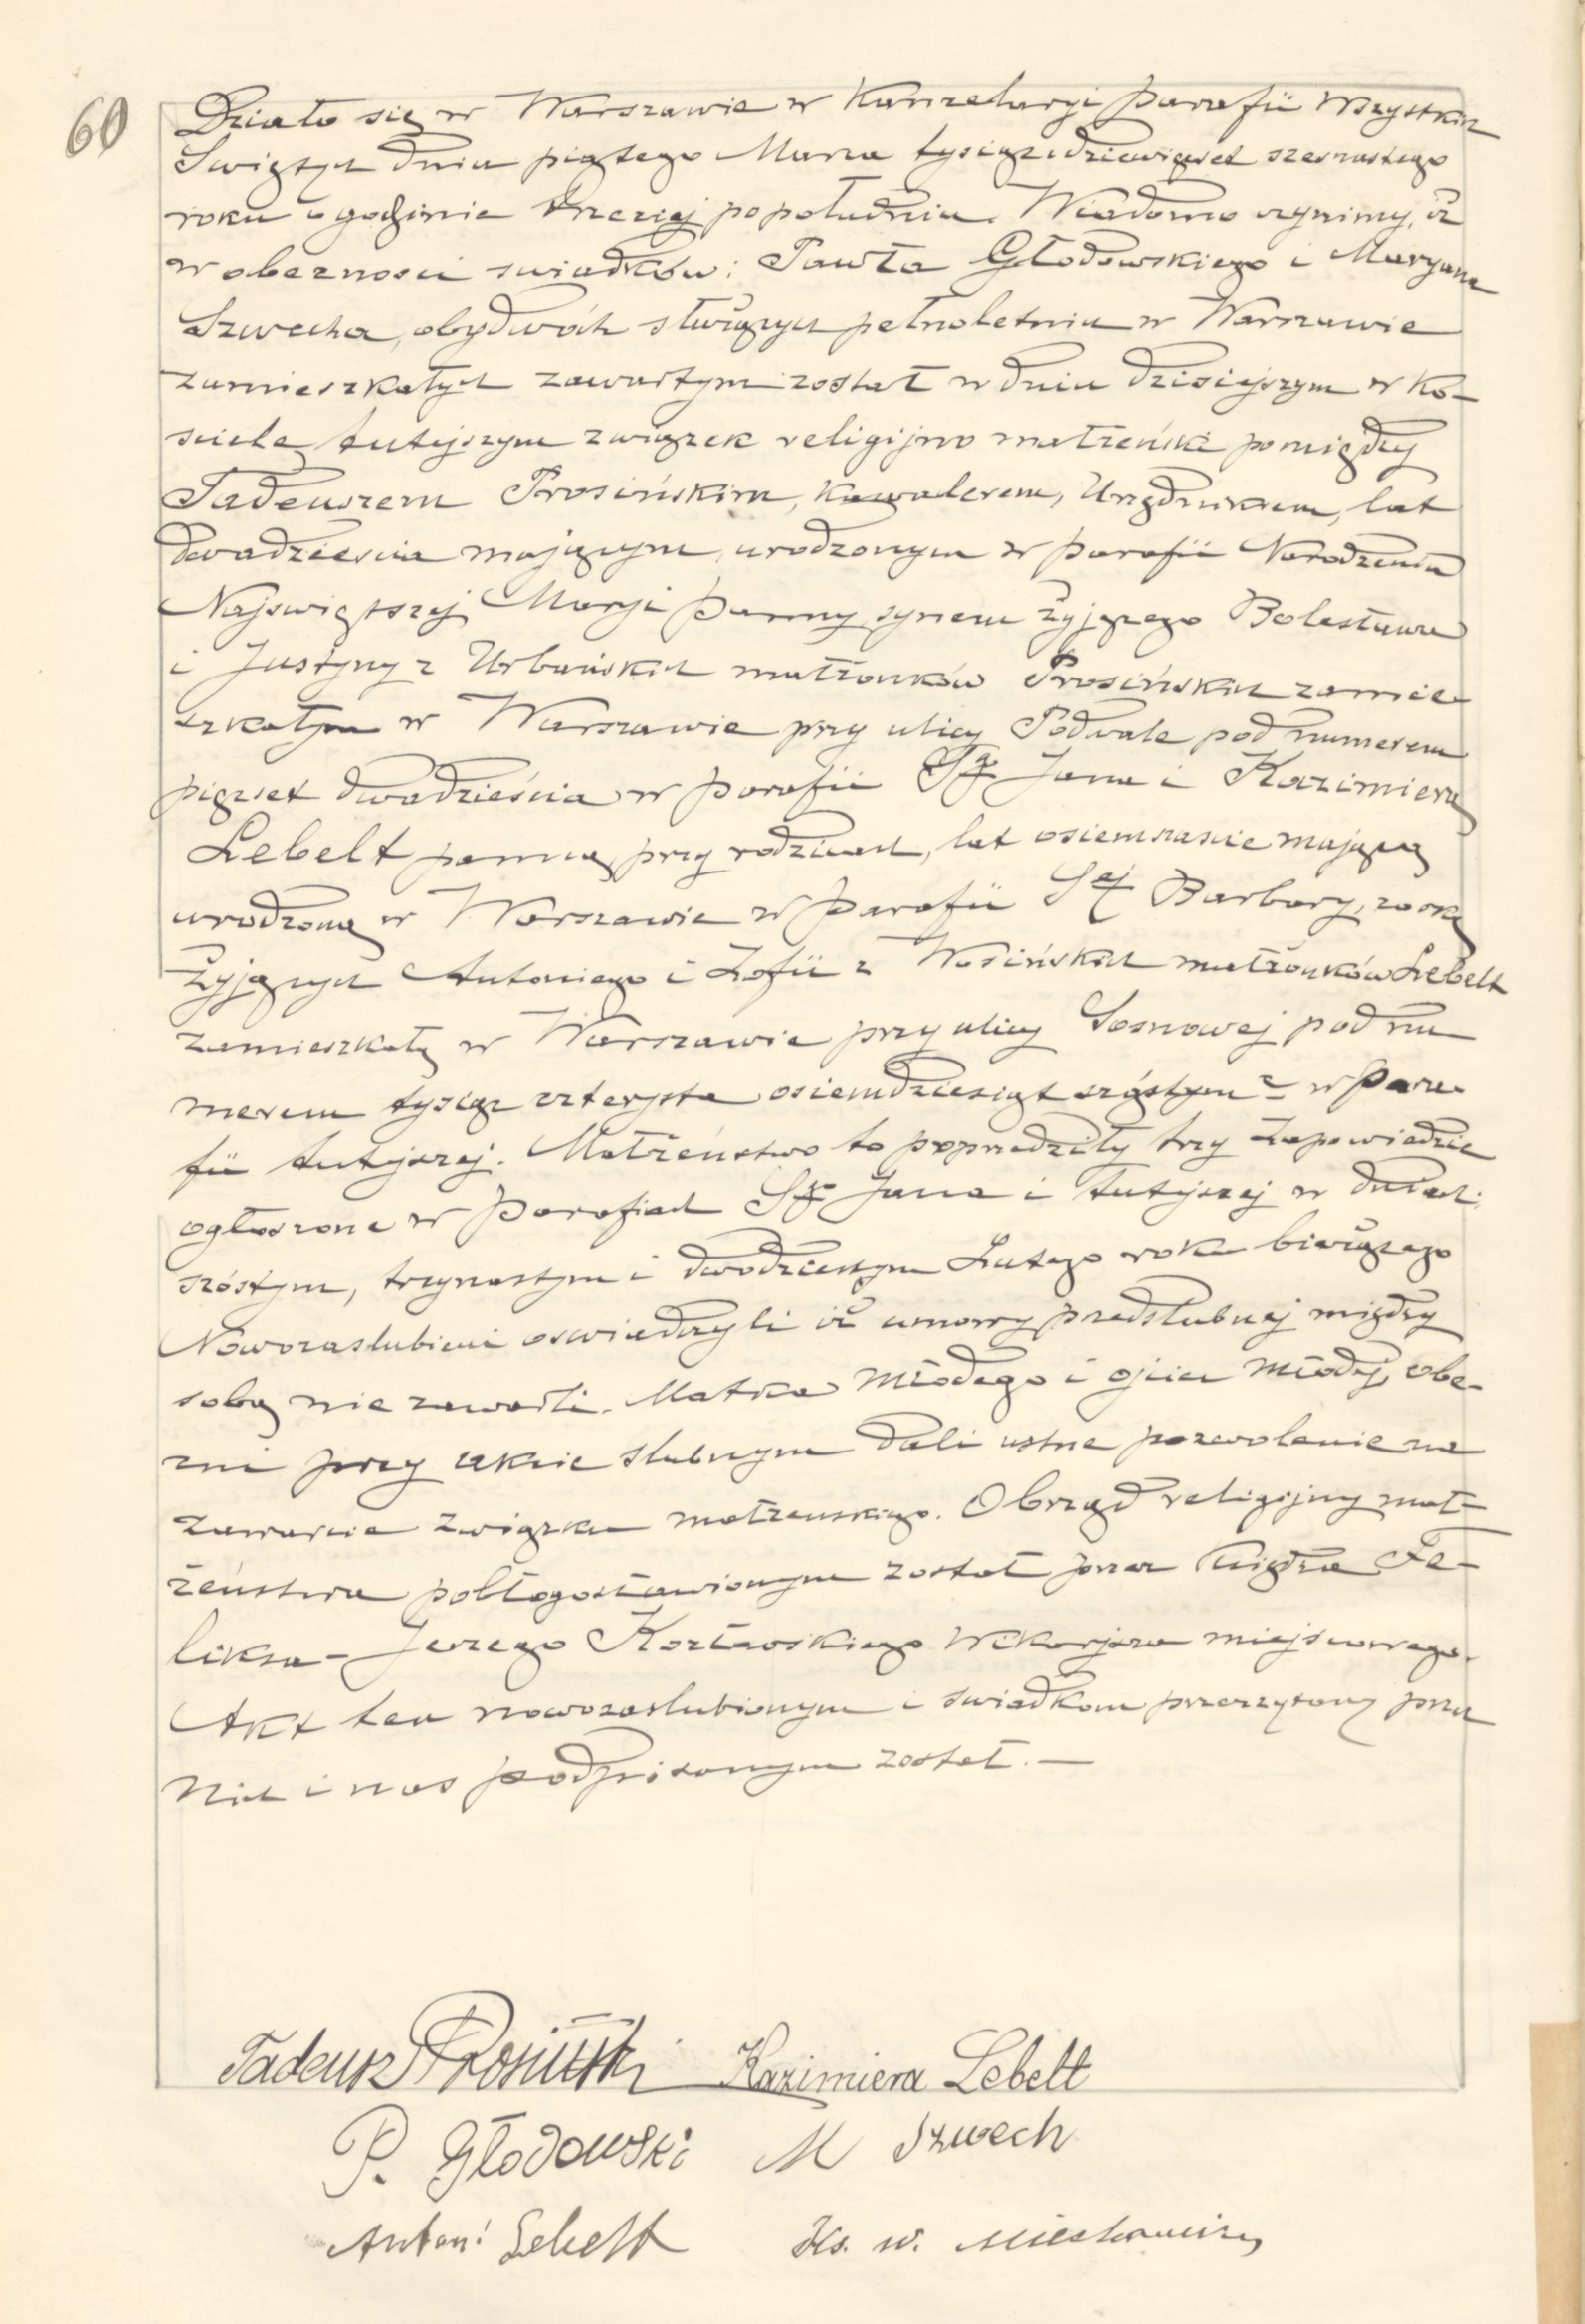 60
Działo się w Warszawie w Kancelaryi parafii Wszystkich
Świętych dnia piątego Marca tysiąc dziewięćset szesnastego
roku o godzinie trzeciej popołudniu. Wiadomo czynimy, iż
w obecności świadków: Pawła Głodowskiego i Maryana
Szwecha, obydwóch służących pełnoletnich w Warszawie
zamieszkałych zawartym został w dniu dzisiejszym w ko-
ściele tutejszym związek religijno małżeński pomiędzy
Tadeuszem Prosińskim, kawalerem, Urzędnikiem, lat
dwadzieścia mającym, urodzonym w parafii Narodzenia
Najświętszej Maryi Panny, synem żyjącego Bolesława
i Justyny z Urbańskich małżonków Prosińskich zamie-
szkałym w Warszawie przy ulicy Podwale pod numerem
pięćset dwadzieścia w parafii Sgo Jana i Kazimierą
Lebelt panną, przy rodzicach, lat osiemnaście mającą
urodzoną w Warszawie w parafii Sej Barbary, córką
żyjących Antoniego i Zofii z Wosińskich małżonków Lebelt
zamieszkałą w Warszawie przy ulicy Sosnowej pod nu
merem tysiąc czterysta osiemdziesiąt szóstym w para-
fii tutejszej. Małżeństwo to poprzedziły trzy Zapowiedzie
ogłoszone w parafiach Sgo Jana i tutejszej w dniach:
szóstym, trzynastym i dwudziestym Lutego roku bieżącego
Nowozaślubieni oświadczyli iż umowy przedślubnej między
sobą nie zawarli. Matka młodego i ojciec młodej, obe-
cni przy akcie ślubnym dali ustne pozwolenie na
zawarcie związku małżeńskiego. Obrząd religijny mał-
żeństwa pobłogosławionym został przez Księdza Fe-
liksa-Jerzego Kozłowskiego Wikaryusza miejscowego.
Akt ten nowozaślubionym i świadkom przeczytany przez
nich i nas podpisanym został. —
Tadeusz Prosiński Kazimiera Lebelt
P. Głodowski M Szwech
Antoni Lebelt Ks. w.